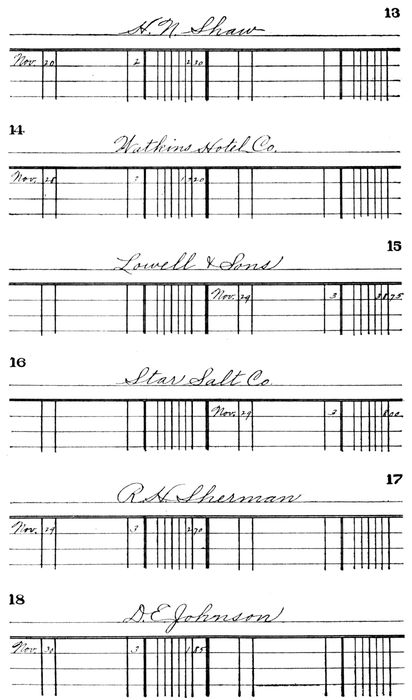 13
H. N. Shaw
Nov. 20 2 2 30
14
Watkins Hotel Co.
Nov. 28 20
15
Lowell & Sons
Nov. 29 3 38 75
16
Star Salt Co.
Nov. 29 3 8 00
17
R. H. Sherman
Nov. 29 3 2 70
18
D. E. Johnson
Nov. 30 3 1 85